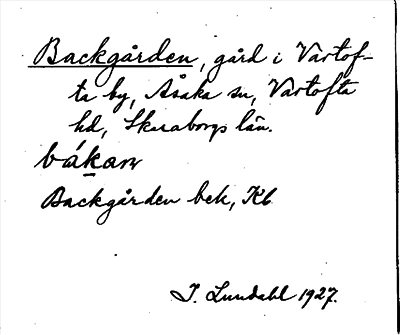 Backgården, gård i Vartof-
ta by, Åsaka sn, Vartofta
hd, Skaraborgs län.
Backgården bek, Kb
I. Lundahl 1927.